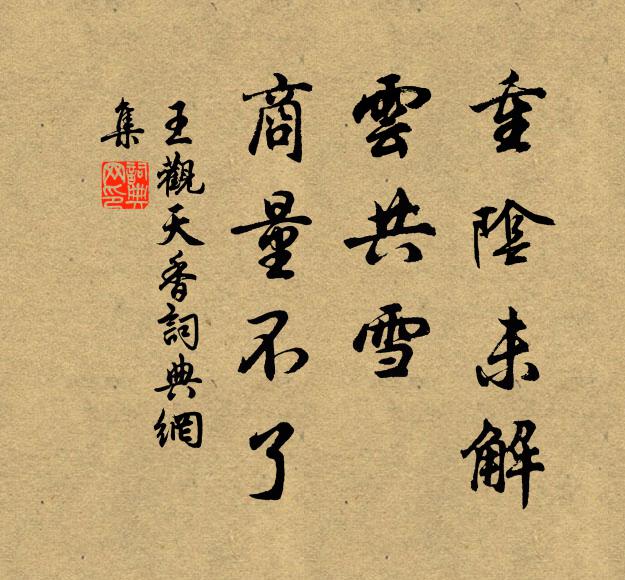 重陰未解
雲共雪
商量不了
王觀天香詞典網
集
詞典
网印